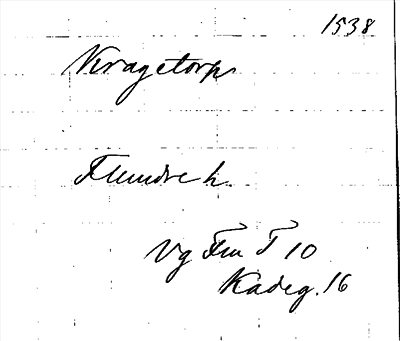 1538
Kragetorp
Flundre h.
Vg Fru T 10
Kadeg. 16